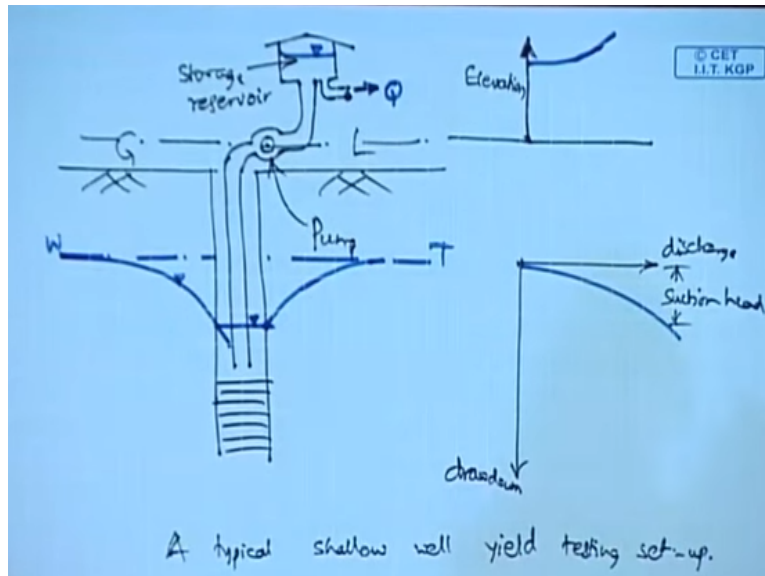 Storage
reservoir
Q
Elevation
© CET
I.I.T. KGP
G L
Pump
W T
discharge
Suction head
drawdown
A typical shallow well yield testing set-up.